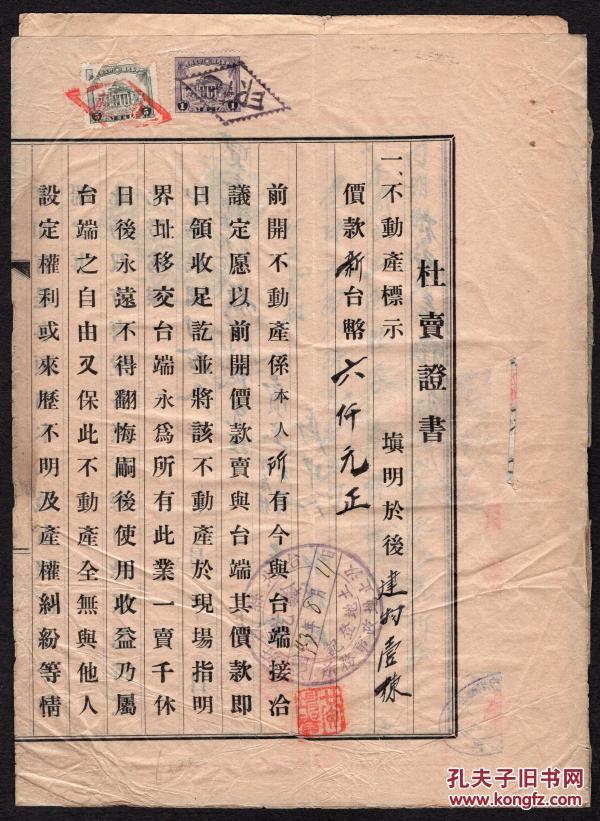 杜賣證書
一、不動產標示　塡明於後建物壹棟
價款新台幣六仟元正
前開不動產係本人所有今與台端接洽
議定愿以前開價款賣與台端其價款即
日領收足訖並將該不動產於現場指明
界址移交台端永為所有此業一賣千休
日後永遠不得翻悔嗣後使用收益乃屬
台端之自由又保此不動產全無與他人
設定權利或來歷不明及產權糾紛等情
5
5
1
1
8月11日
孔夫子旧书网
www.kongfz.com